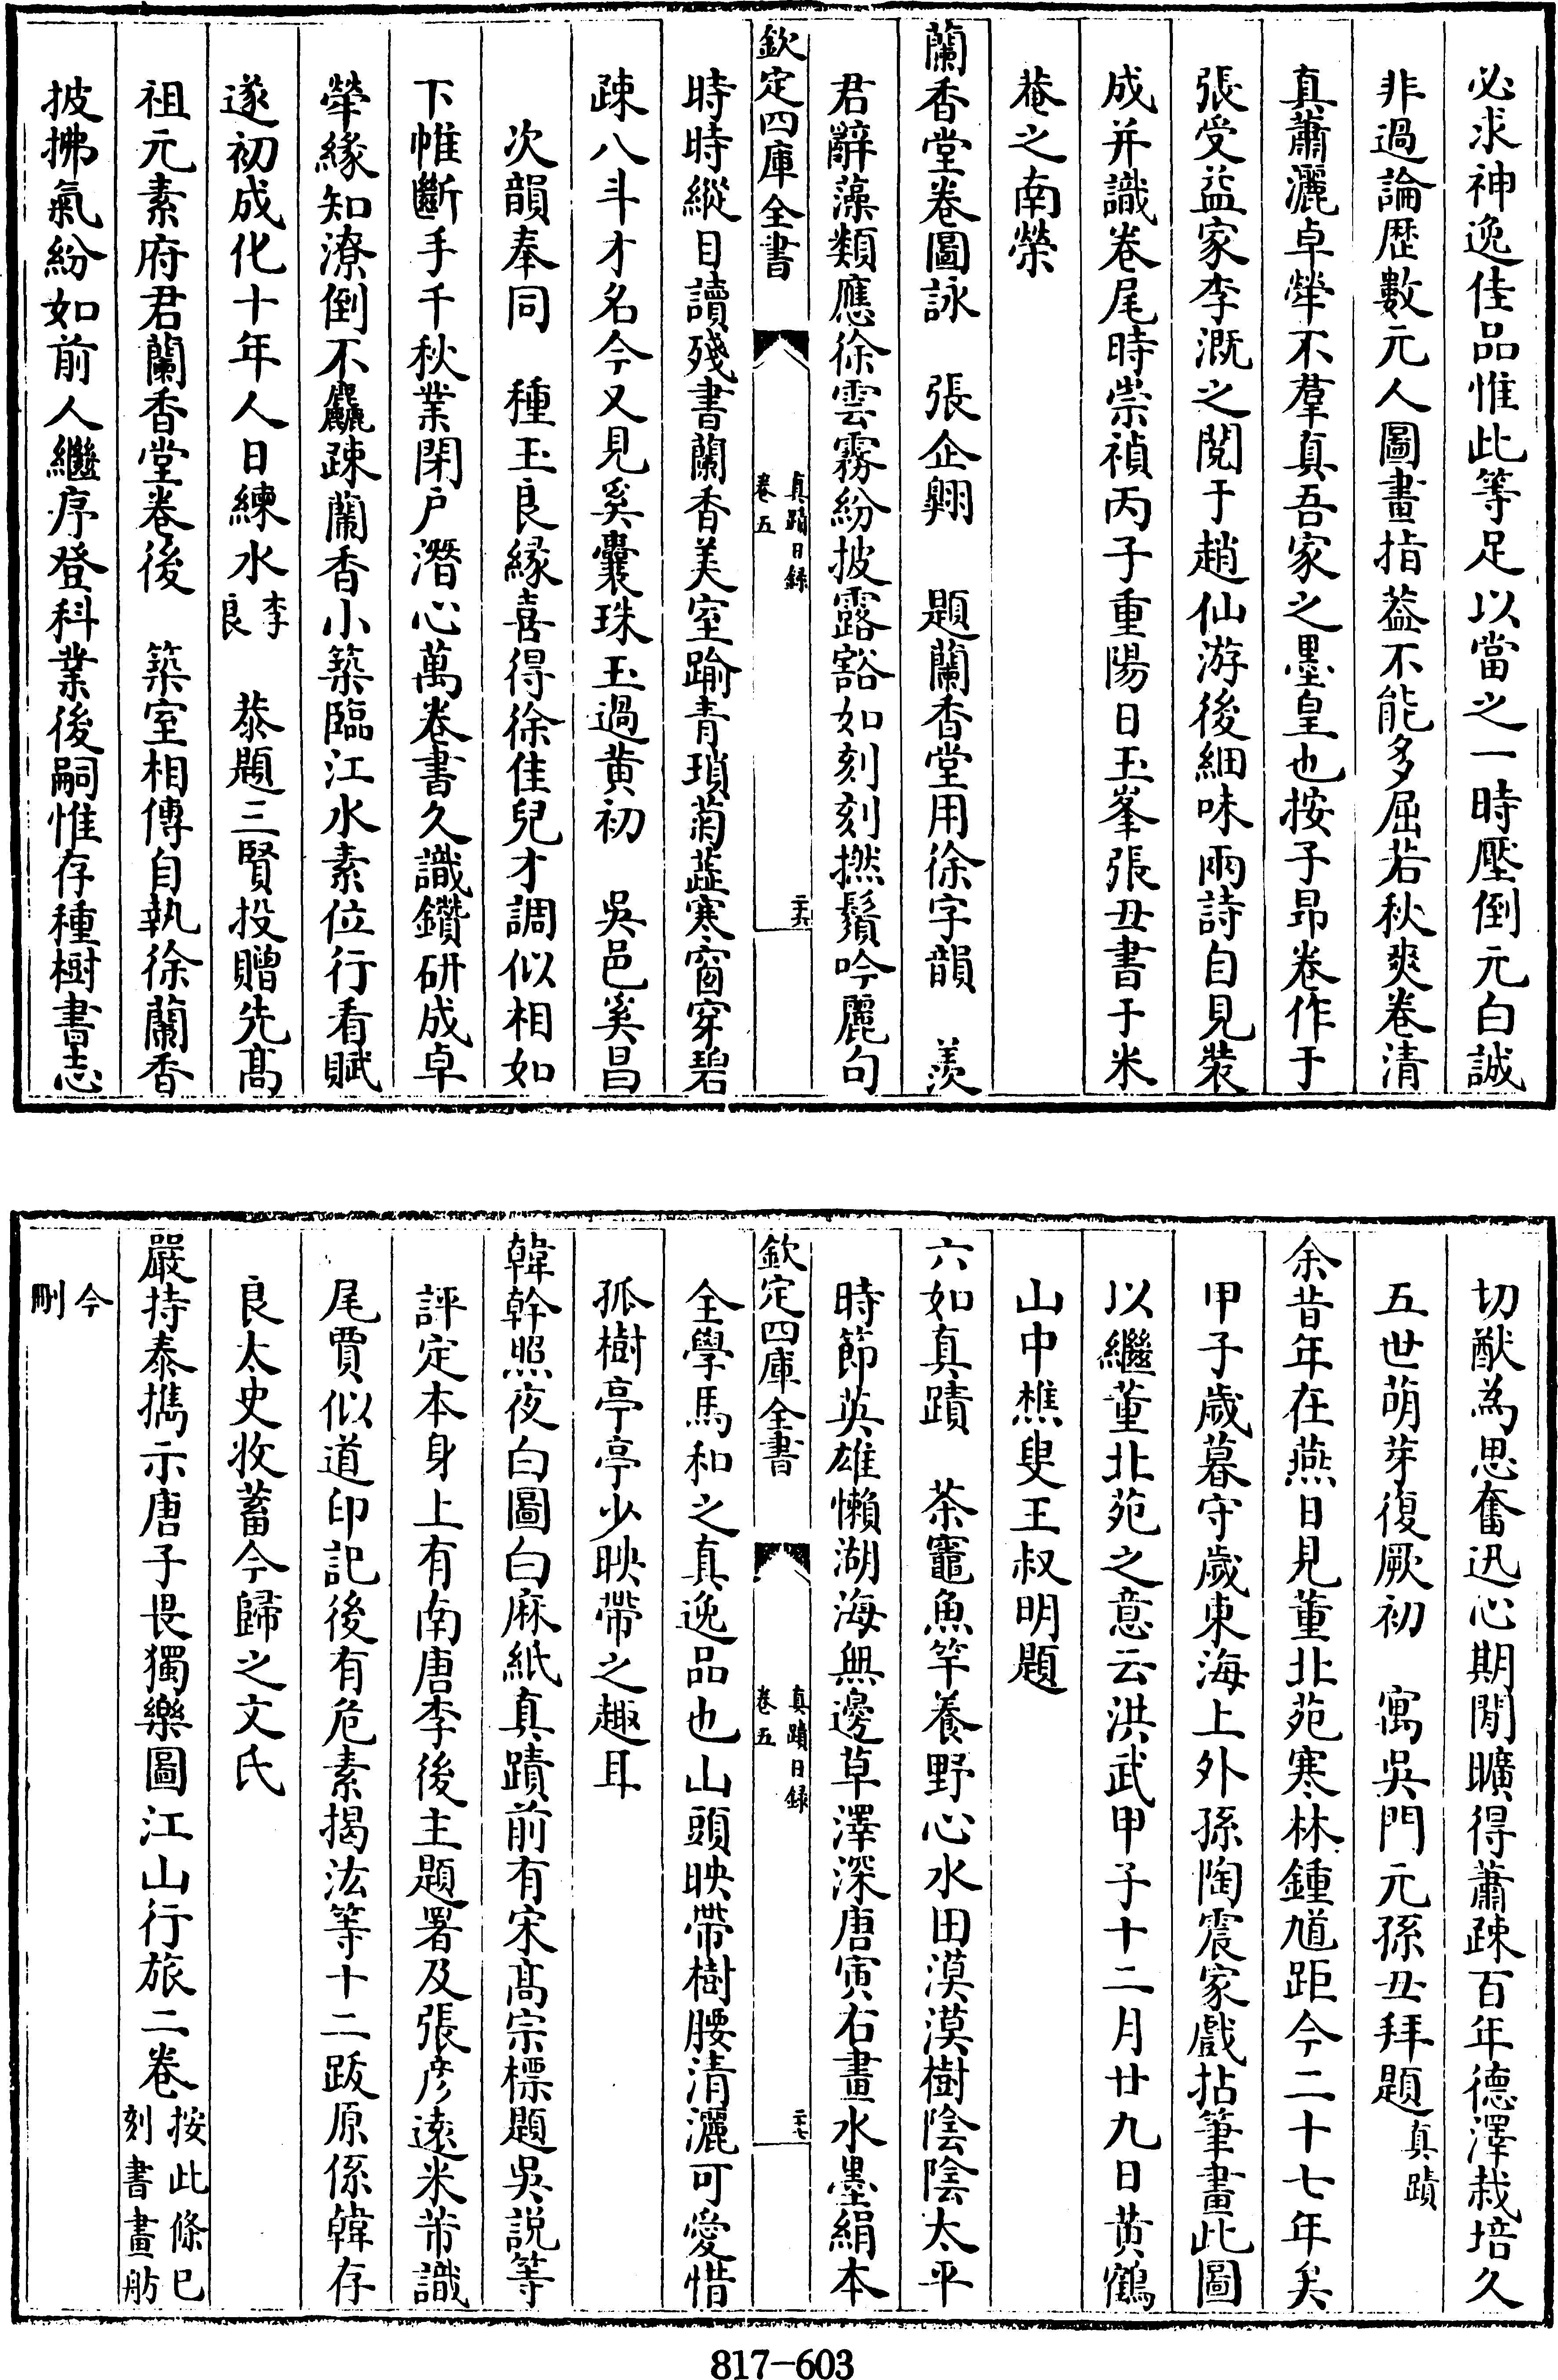 必求神逸佳品惟此等足以當之一時壓倒元白誠
非過論歷數元人圖畫指葢不能多屈若秋爽卷清
真蕭灑卓犖不羣真吾家之墨皇也按子昻卷作于
張受益家李溉之閱于趙仙游後細味兩詩自見裝
成并識卷尾時崇禎丙子重陽日玉峯張丑書于米
菴之南榮
蘭香堂卷圖詠　張企翺　題蘭香堂用徐字韻　羨
君辭藻類應徐雲霧紛披露豁如刻刻撚鬚吟麗句
欽定四庫全書
真蹟日録
卷五
二六
時時縱目讀殘書蘭香美室踰青瑣菊蕋寒窗穿碧
疎八斗才名今又見奚囊珠玉過黄初　吳邑奚昌
次韻奉同　種玉良緣喜得徐佳兒才調似相如
下帷斷手千秋業閉戶潛心萬卷書久識鑽研成卓
犖緣知潦倒不麤疎蘭香小築臨江水素位行看賦
遂初成化十年人日練水李良　恭題三賢投贈先髙
祖元素府君蘭香堂卷後　築室相傳自執徐蘭香
披拂氣紛如前人繼序登科業後嗣惟存種樹書志
切猷為思奮迅心期閒曠得蕭疎百年德澤栽培久
五世萌芽復厥初　寓吳門元孫丑拜題真蹟
余昔年在燕日見董北苑寒林鍾馗距今二十七年矣
甲子歲暮守歲東海上外孫陶震家戲拈筆畫此圖
以繼董北苑之意云洪武甲子十二月廿九日黄鶴
山中樵叟王叔明題
六如真蹟　茶竈魚竿養野心水田漠漠樹陰陰太平
時節英雄懶湖海無邊草澤深唐寅右畫水墨絹本
欽定四庫全書
真蹟日録
卷五
二七
全學馬和之真逸品也山頭映帶樹腰清灑可愛惜
孤樹亭亭少映帶之趣耳
韓幹照夜白圖白麻紙真蹟前有宋髙宗標題吳説等
評定本身上有南唐李後主題署及張彦逺米芾識
尾賈似道印記後有危素揭汯等十二跋原係韓存
良太史收蓄今歸之文氏
嚴持泰攜示唐子畏獨樂圖江山行旅二卷按此條已刻書畫舫
今刪
817-603